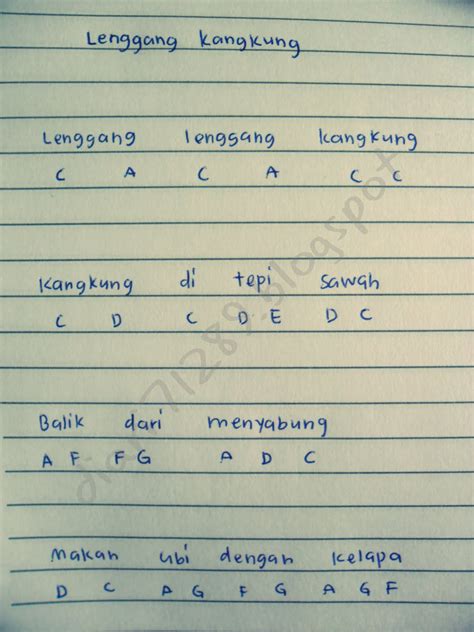 Lenggang Kangkung
Lenggang lenggang kangkung
C A C A C C
Kangkung di tepi sawah
C D C D E D C
Balik dari menyabung
A F F G A D C
Makan ubi dengan kelapa
D C A G F G A G F